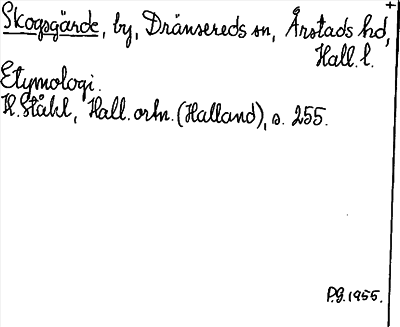 Skogsgärde, by, Drängsereds sn, Årstads hd,
Hall. l.
Etymologi.
H. Ståhl, Hall. ortn. (Halland), s. 255.
P.G. 1955.